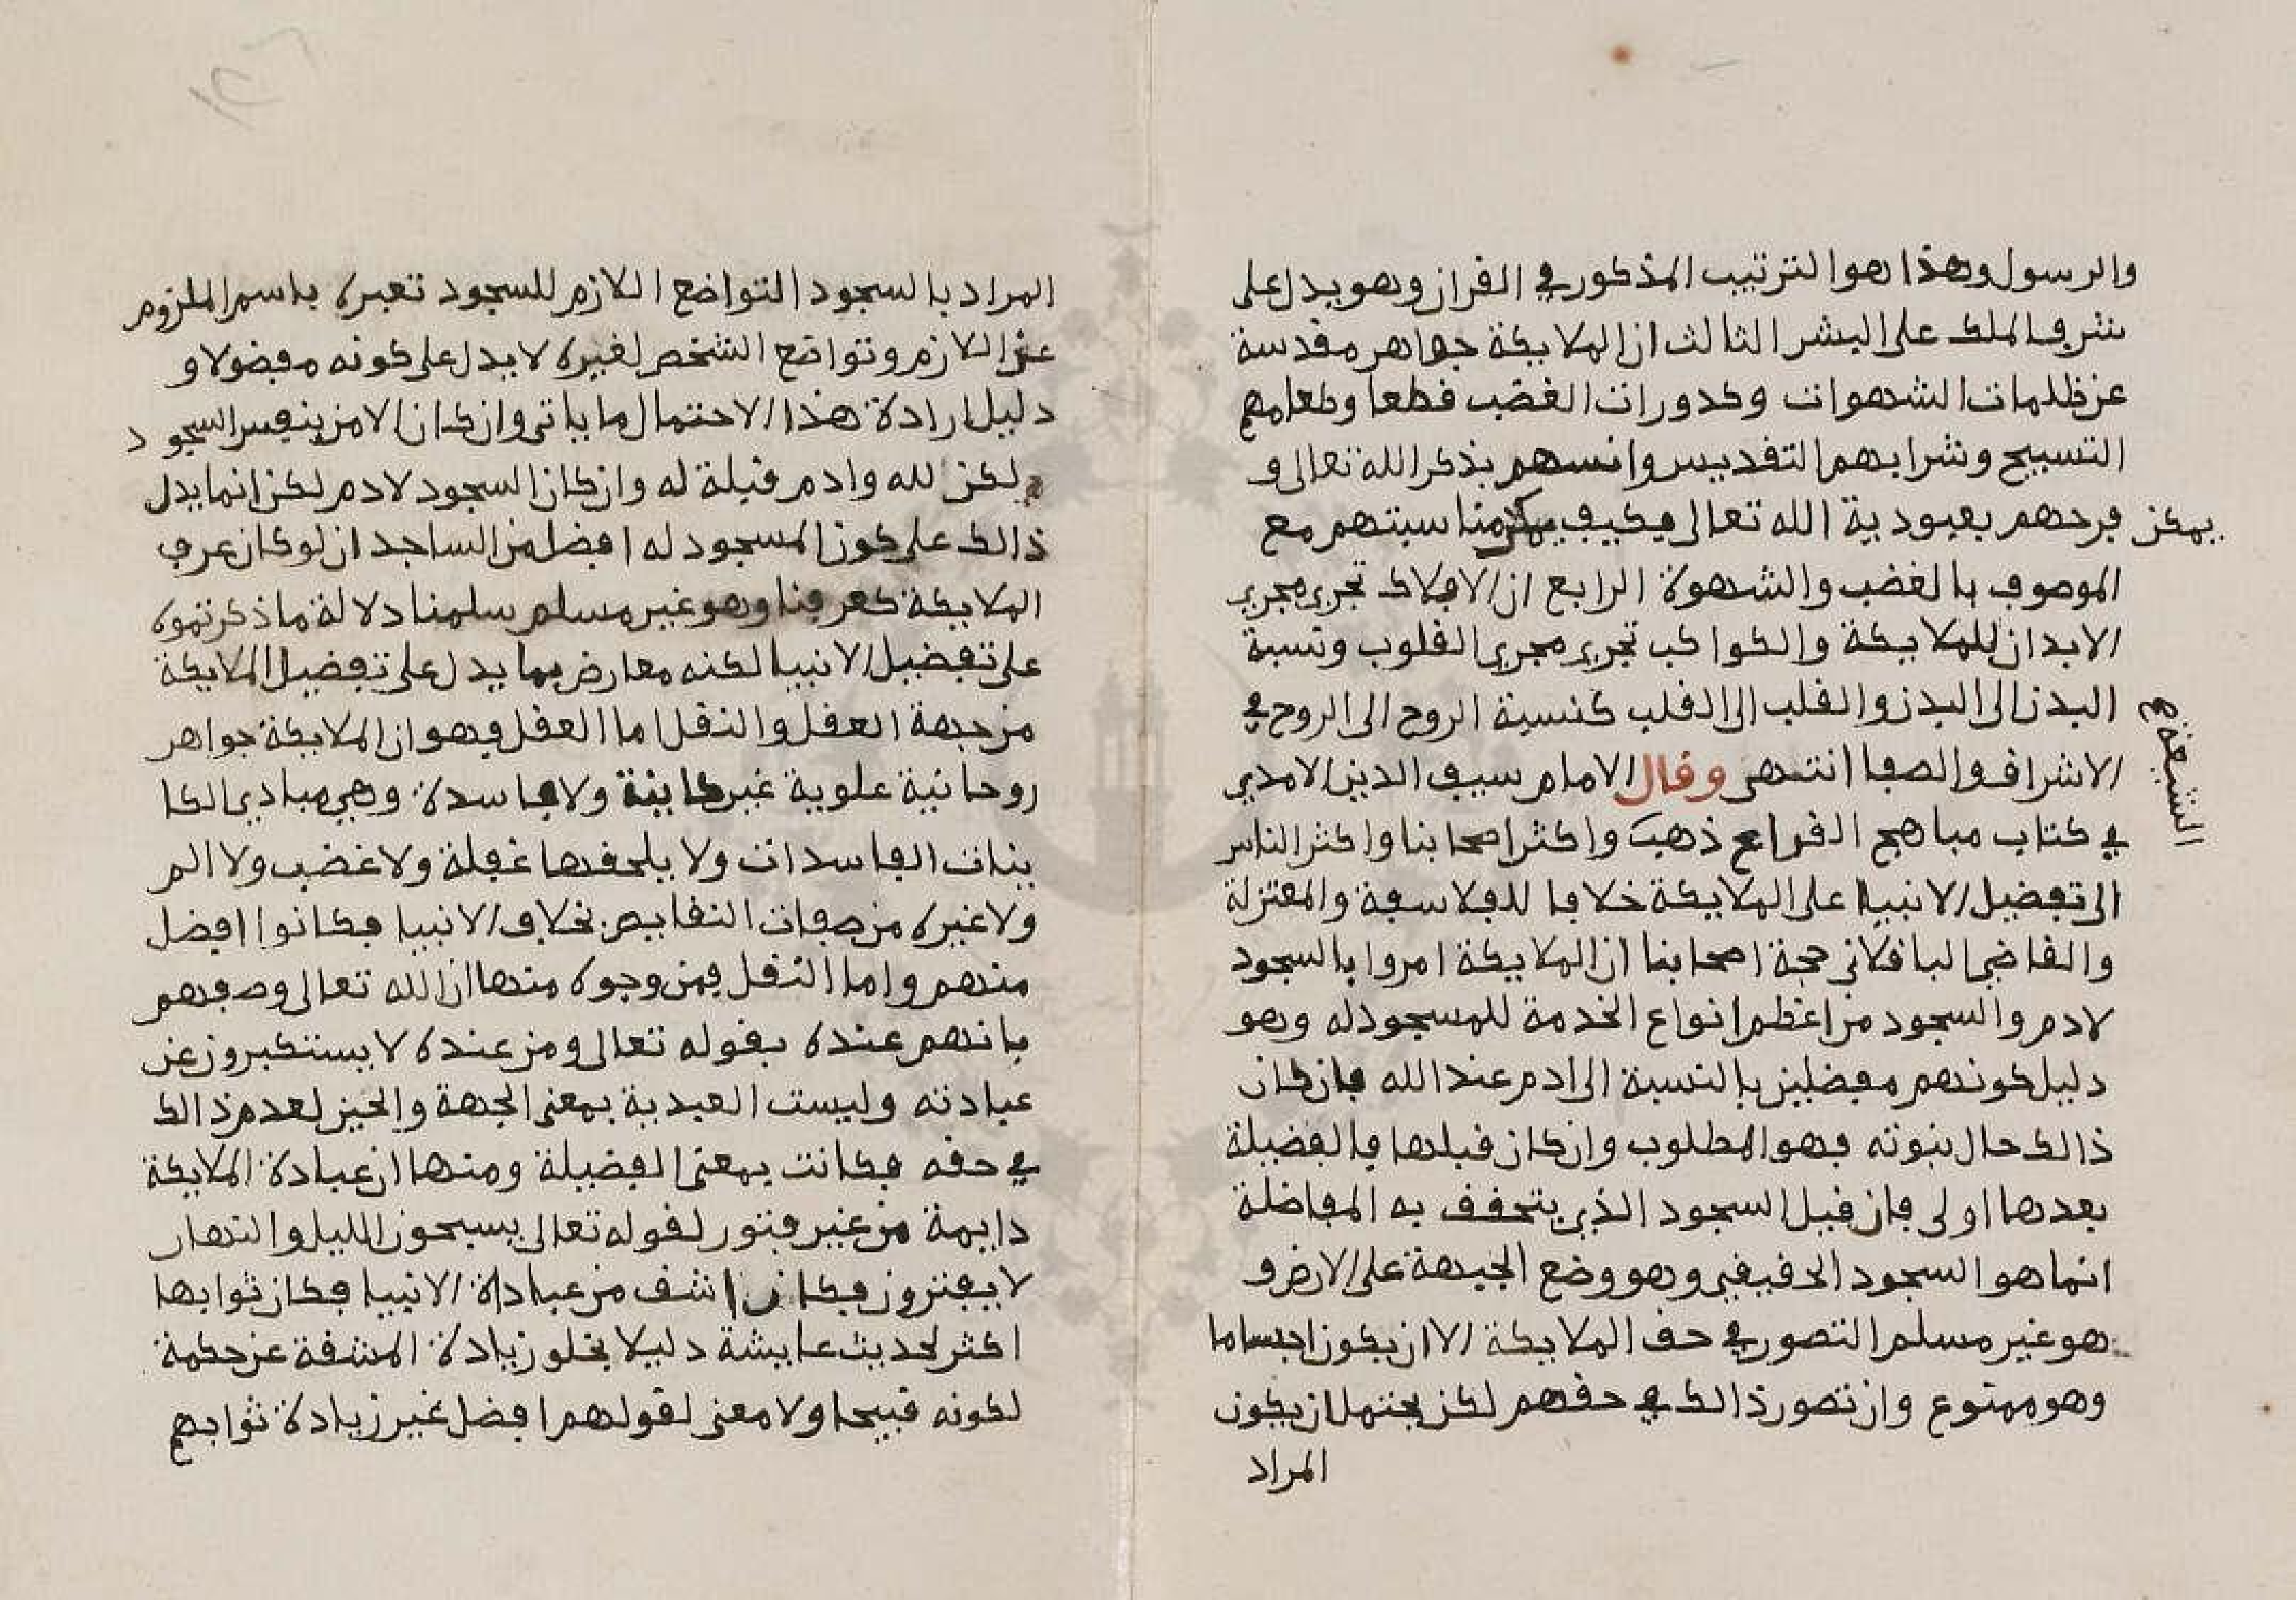 والرسول وهذا هو الترتيب المذكور في القران وهو يدل على
شرف الملك على البشر الثالث ان الملايكة جواهر مقدسة
عن ظلمات الشهوات وكدورات الغضب قطعا وطعامهم
التسبيح وشرابهم التقديس وانسهم بذكر الله تعالى و
فرحهم بعبودية الله تعالى فكيف يمكن مناسبتهم مع
يمكن
الموصوف بالغضب والشهوة الرابع ان الافلاك تجري مجرى
الابدان للملايكة والكواكب تجري مجرى القلوب ونسبة
البدن الى البدن والقلب الى القلب كنسبة الروح الى الروح في
الاشراف والصفا انتهى وقال الامام سيف الدين الامدي
في كتاب مباهج القرايح ذهبت واكثر اصحابنا واكثر الناس
الشيعة
الى تفضيل الانبيا على الملايكة خلافا للفلاسفة والمعتزلة
والقاضي الباقلاني حجة اصحابنا ان الملايكة امروا بالسجود
لادم والسجود من اعظم انواع الخدمة للمسجود له وهو
دليل كونهم مفضلين بالنسبة الى ادم عند الله فان كان
ذالك حال نبوته فهو المطلوب وان كان قبلها فالفضيلة
بعدها اولى فان قيل السجود الذي يتحقق به المفاضلة
انما هو السجود الحقيقي وهو وضع الجبهة على الارض و
هو غير مسلم التصور في حق الملايكة الا ان يكون اجساما
وهو ممنوع وان تصور ذالك في حقهم لكن يحتمل ان يكون
المراد
المراد بالسجود التواضع اللازم للسجود تعبره باسم الملزوم
عن اللازم وتواضع الشخص لغيره لا يدل على كونه مفضولا و
دليل ارادة هذا الاحتمال ما ياتي وان كان الامر بنفس السجود
لكن لله وادم قبلة له وان كان السجود لادم لكن انما يدل
ذالك على كون المسجود له افضل من الساجد ان لو كان عرف
الملايكة كعرفنا وهو غير مسلم سلمنا دلالة ما ذكرتموه
على تفضيل الانبيا لكنه معارض بما يدل على تفضيل الملايكة
من جهة العقل والنقل اما العقل فهو ان الملايكة جواهر
روحانية علوية غير كاينة ولا فاسدة وهي مبادي الكا
ينات الفاسدات ولا يلحقها غفلة ولا غضب ولا الم
ولا غيره من صفات النقايص بخلاف الانبيا فكانوا افضل
منهم واما النقل فمن وجوه منها ان الله تعالى وصفهم
بانهم عنده بقوله تعالى ومن عنده لا يستكبرون عن
عبادته وليست العبدية بمعنى الجهة والحيز لعدم ذالك
في حقه فكانت بمعنى الفضيلة ومنها ان عبادة الملايكة
دايمة من غير فتور لقوله تعالى يسبحون الليل والنهار
لا يفترون فكان اشق من عبادة الانبيا فكان ثوابها
اكثر لحديث عايشة دليلا يخلو زيادة المشقة عن حكمة
لكونه قبيحا ولا معنى لقولهم افضل غير زيادة ثوابهم